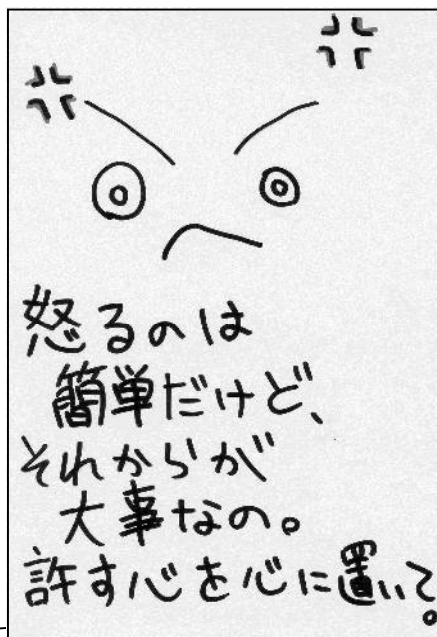 怒るのは
簡単だけど、
それからが
大事なの。
許す心を心に置いて。